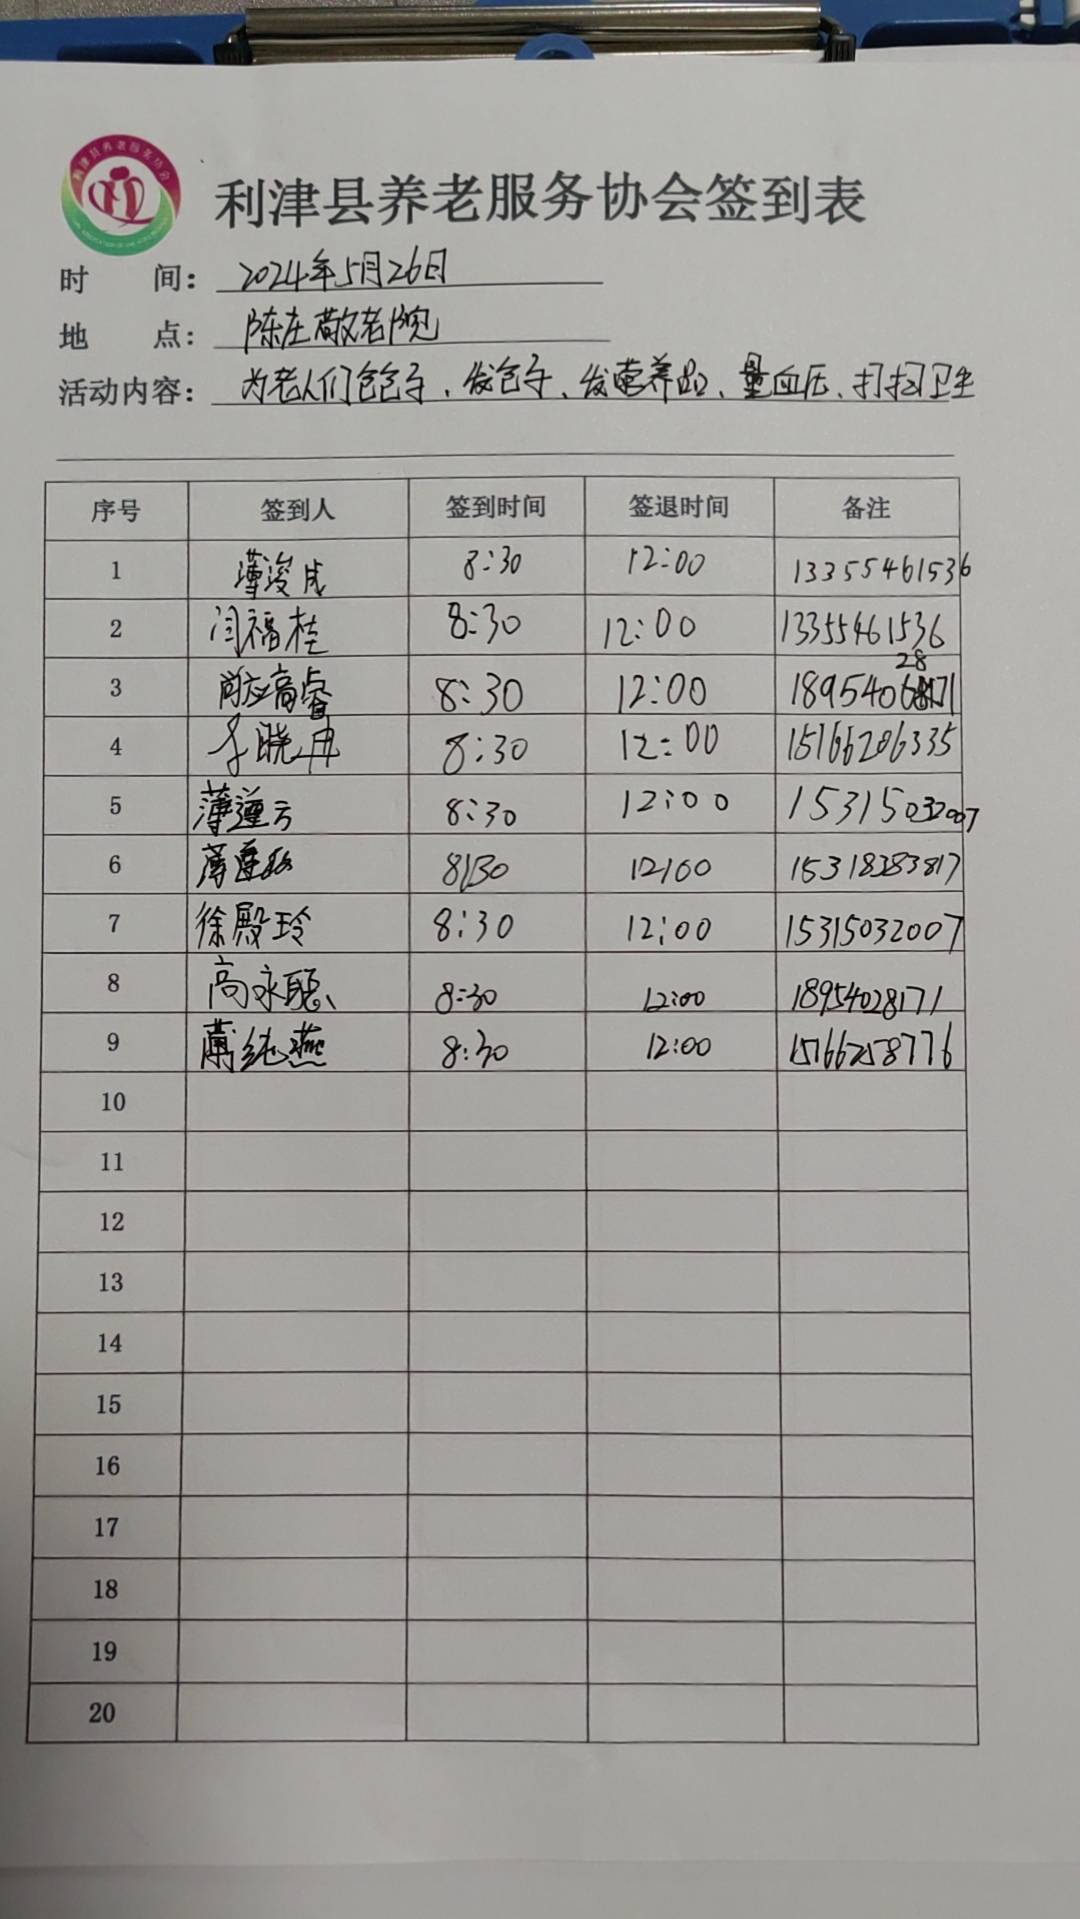 利津县养老服务协会
利津县养老服务协会签到表
时 间: 2024年5月26日
地 点: 陈庄敬老院
活动内容: 为老人们包包子、发包子、发营养品、量血压、打扫卫生
序号 签到人 签到时间 签退时间 备注
1 薄浚成 8:30 12:00 13355461536
2 闫福桂 8:30 12:00 13355461536
28
3 高睿 8:30 12:00 1895406
4 李晓冉 8:30 12:00 15166206335
5 薄莲云 8:30 12:00 15315032007
6 薄 8:30 12:00 15318383817
7 徐殿玲 8:30 12:00 15315032007
8 高永聪 8:30 12:00 18954028171
9 薄纯燕 8:30 12:00 15166258776
10
11
12
13
14
15
16
17
18
19
20